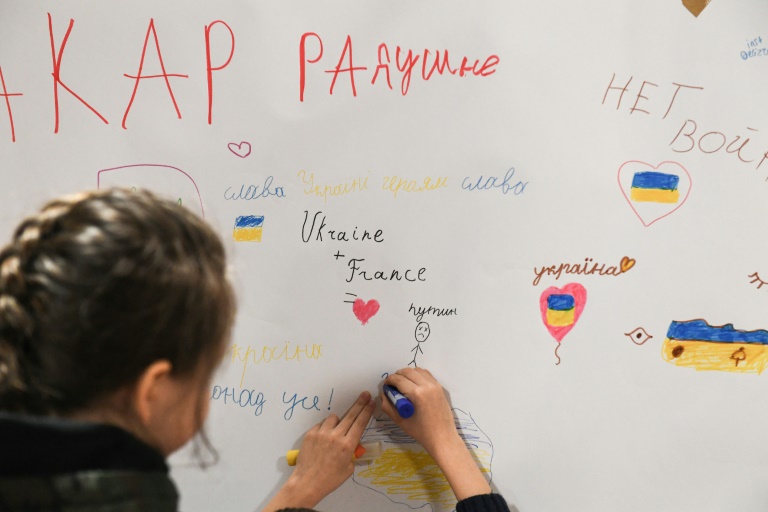 КАР РАдушне
НЕТ
ВОЙН
слава Україні героям слава
Ukraine
+
France
=
україна
путин
україна
онад усе!